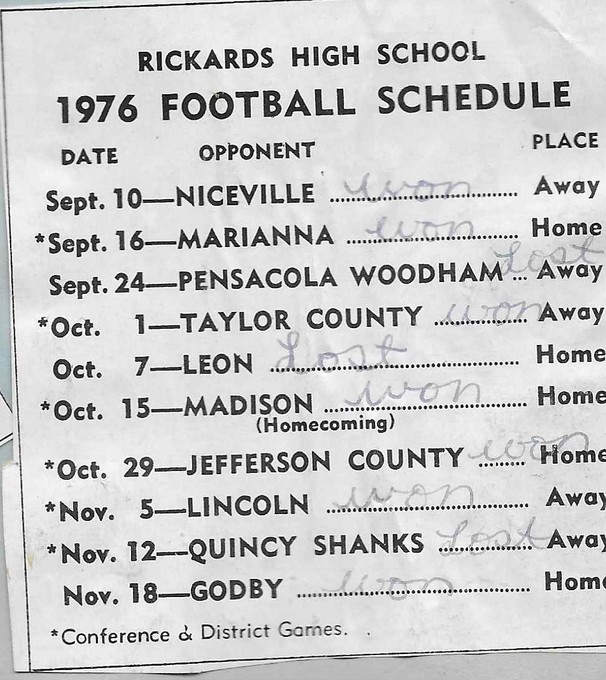 RICKARDS HIGH SCHOOL
1976 FOOTBALL SCHEDULE
DATE OPPONENT PLACE
Sept. 10—NICEVILLE ........ won ........ Away
*Sept. 16—MARIANNA ........ won ........ Home
Sept. 24—PENSACOLA WOODHAM ... Lost Away
*Oct. 1—TAYLOR COUNTY ........ won Away
Oct. 7—LEON ........ Lost ........ Home
*Oct. 15—MADISON ........ won ........ Home
(Homecoming)
*Oct. 29—JEFFERSON COUNTY ........ won Home
*Nov. 5—LINCOLN ........ won ........ Away
*Nov. 12—QUINCY SHANKS ........ Lost Away
Nov. 18—GODBY ........ won ........ Home
*Conference & District Games.